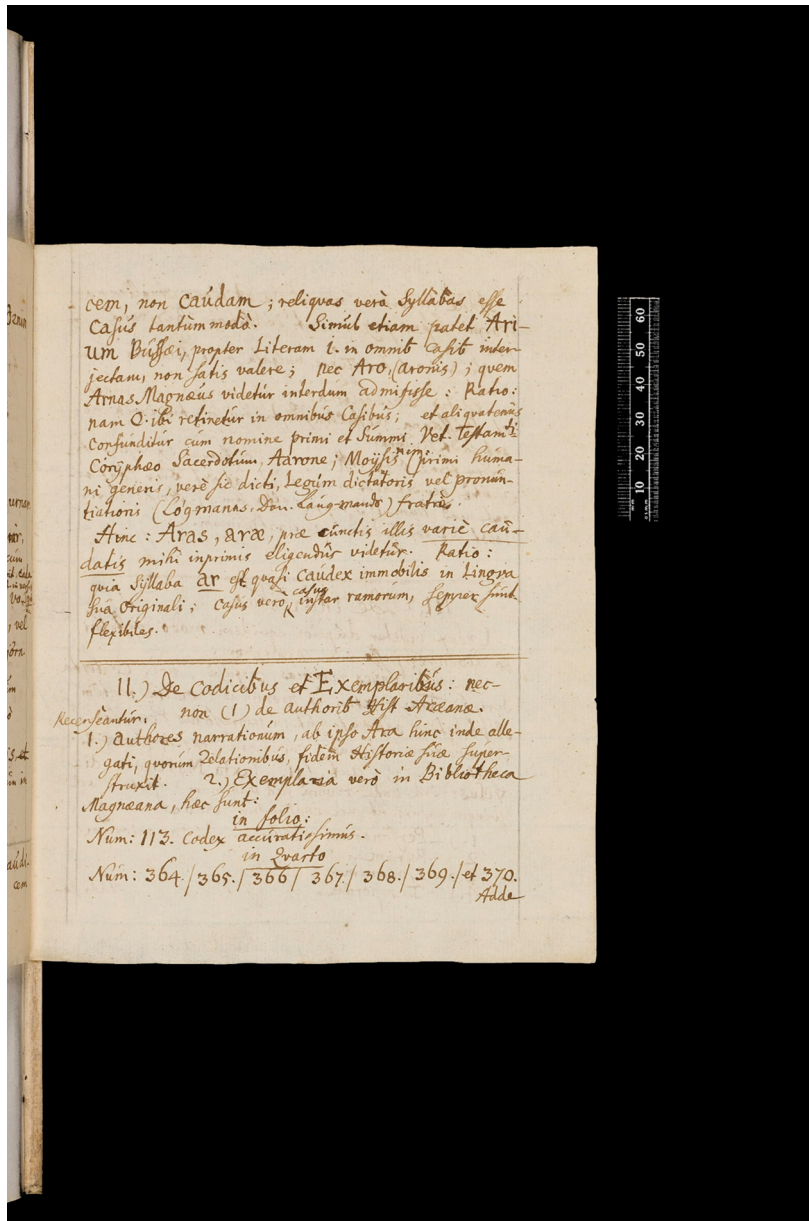 cem, non caudam; reliqvas verò Syllabas esse
Casus tantùm modò. Simul etiam patet Ari-
um Bussæi, propter Literam i. in omnib casib inter-
jectam, non satis valere; nec Aro, (aronis); qvem
Arnas Magnæus videtur interdum admisisse: Ratio:
nam O. ibi retinetur in omnibus Casibus; et aliqvatenus
confunditur cum nomine primi et Summi Vet. Testamti
Corÿphæo Sacerdotum Aarone; Moÿsis nem. primi huma-
ni generis, verè sic dicti, Legum dictatoris vel pronun-
tiationis (Lógmanns, Dan. Laug-mands) fratris.
Hinc: Aras, aræ, præ cunctis illis variè cau-
datis mihi inprimis eligendus videtur. Ratio:
qvia Syllaba ar est qvasi caudex immobilis in Lingva
sua Originali; casus verò casus instar ramorum, semper sunt
flexibiles.
II.) De Codicibus et Exemplaribus: nec-
non (1) de authorib Hist Aræanæ.
Recenseantur.
1.) authores narrationum, ab ipso Ara hinc inde alle-
gati, qvorum Relationibus, fidem Historiæ suæ super-
struxit. 2.) Exemplaria verò in Bibliotheca
Magnæana, hæc sunt:
in folio:
Num: 113. Codex accuratissimus.
in Qvarto
Num: 364./ 365./ 366/ 367./ 368./ 369./ et 370.
Adde